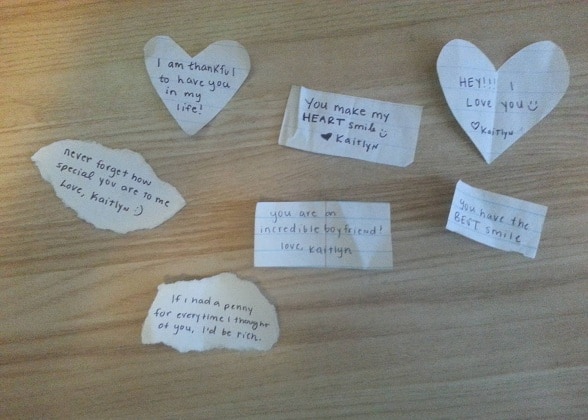 I am thankful
to have you
in my
life!
You make my
HEART smile
♥ Kaitlyn
HEY!!! I
Love you
♡ Kaitlyn
never forget how
special you are to me
Love, Kaitlyn :)
you are an
incredible boyfriend!
love, kaitlyn
you have the
BEST smile
If i had a penny
for everytime i thought
of you, I'd be rich.